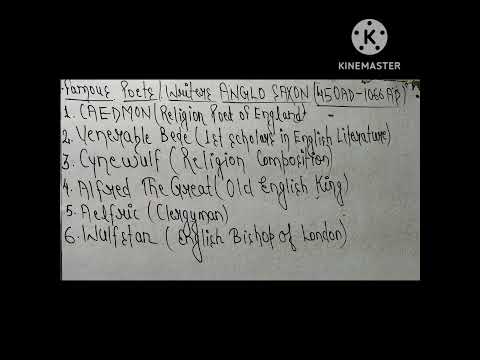 K
KINEMASTER
Famous Poets/Writers ANGLO SAXON (450AD-1066AD)
1. CAEDMON (Religion Poet of England)
2. Venerable Bede (1st scholars in English Literature)
3. Cynewulf (Religion Composition)
4. Alfred The Great (Old English King)
5. Aelfric (Clergyman)
6. Wulfstan (English Bishop of London)